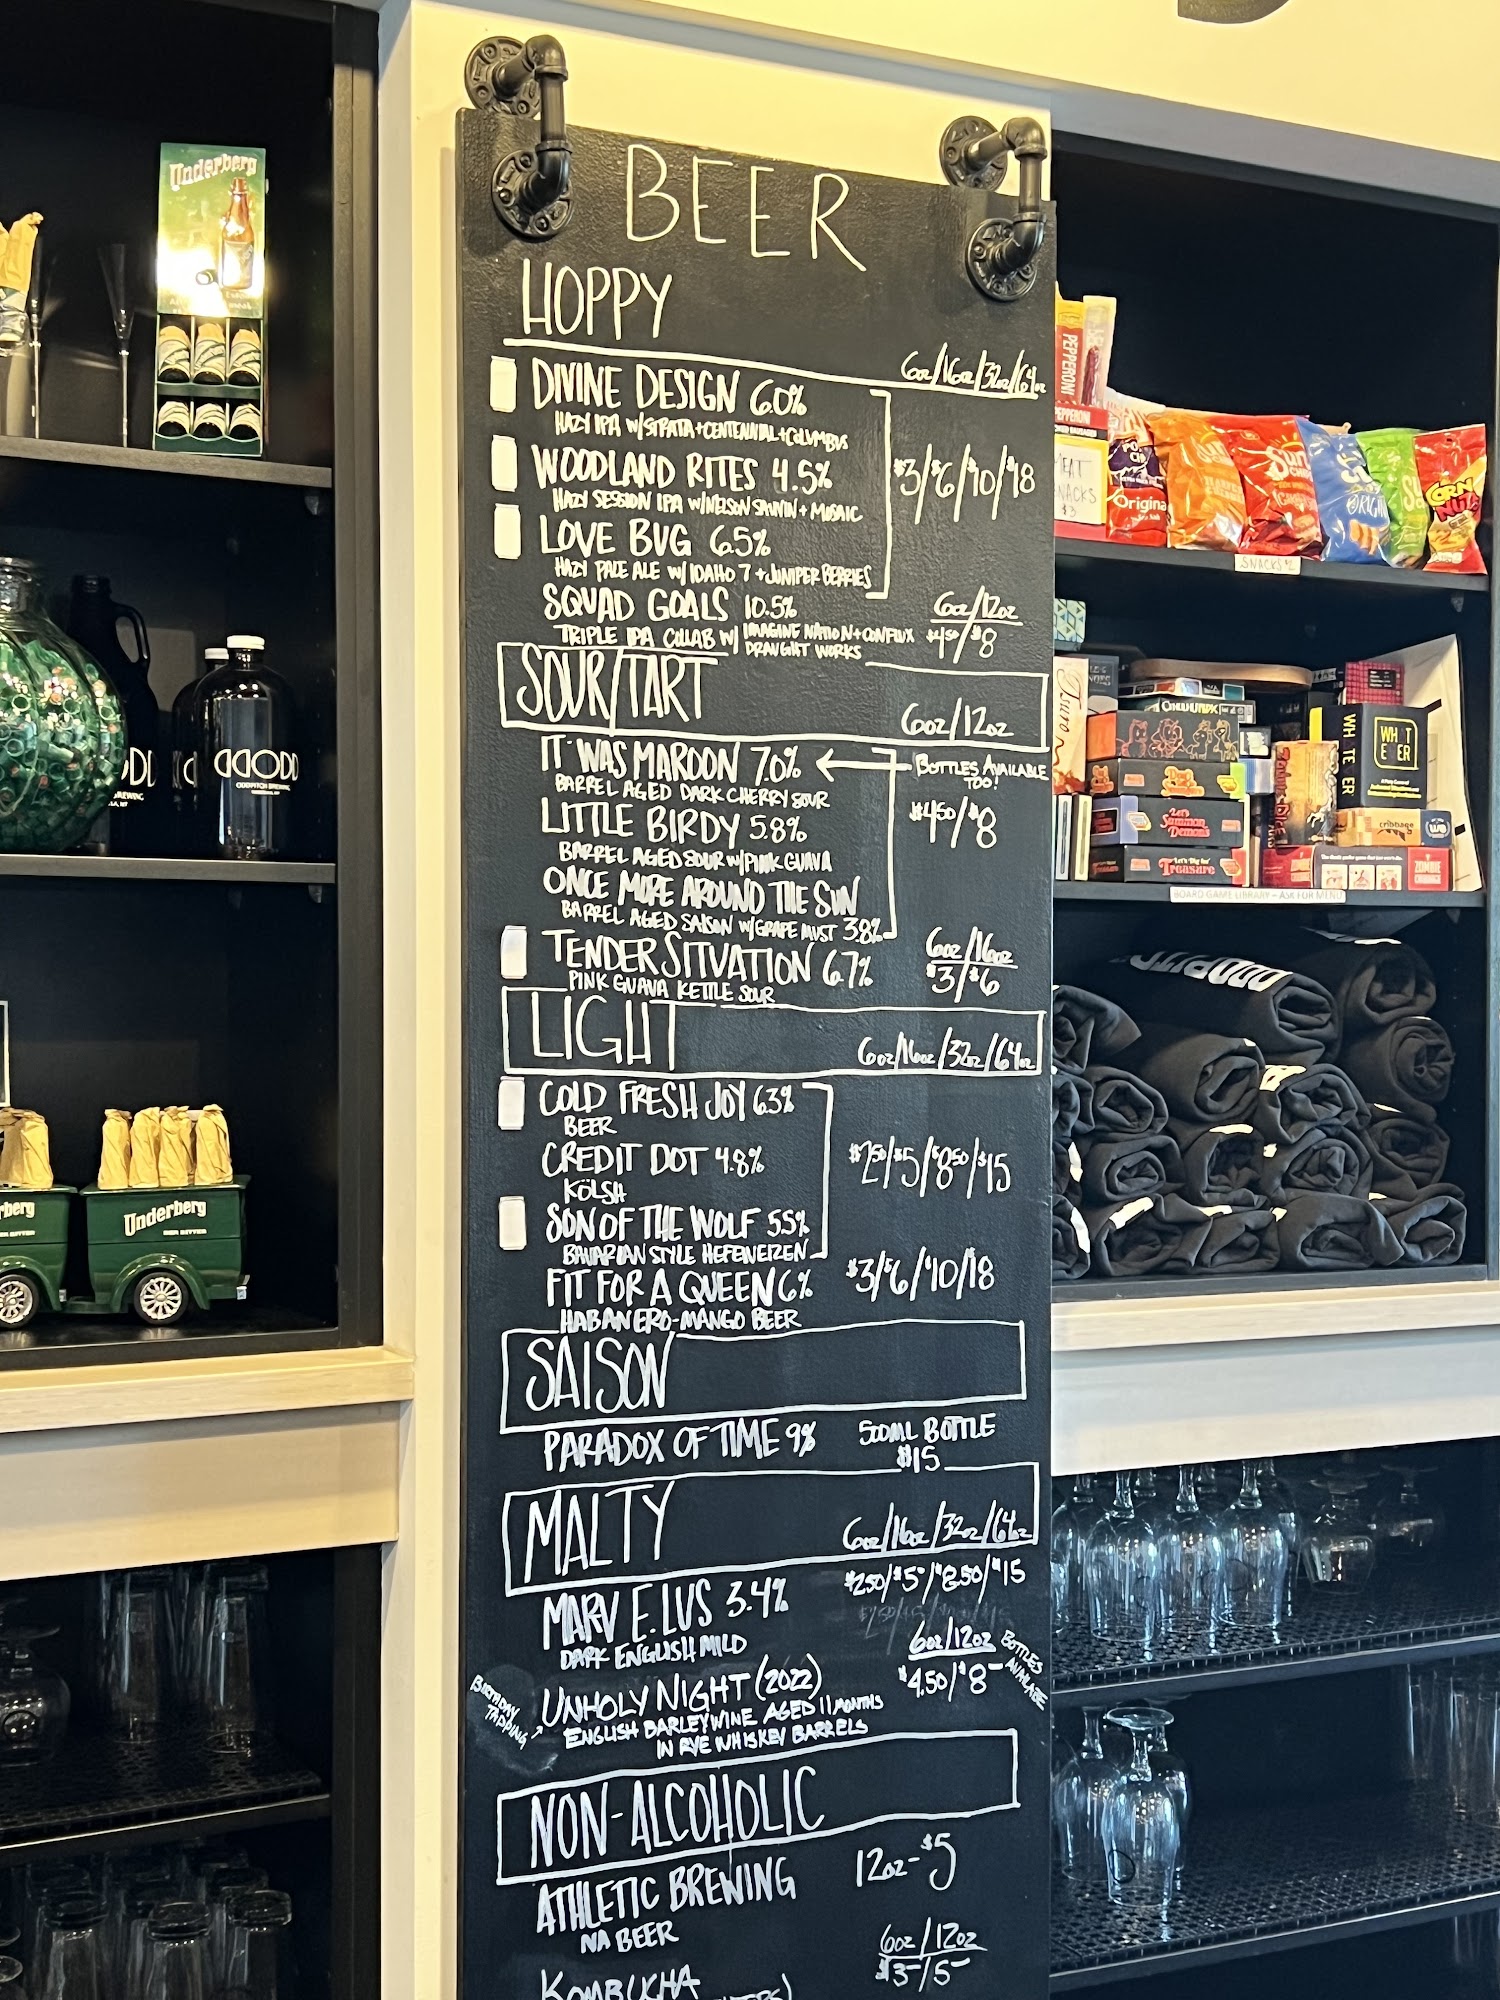 BEER
HOPPY
6oz/16oz/32oz/64oz
DIVINE DESIGN 6.0%
HAZY IPA W/STRATA+CENTENNIAL+COLUMBUS
WOODLAND RITES 4.5%
HAZY SESSION IPA W/NELSON SAUVIN + MOSAIC
$3/$6/$10/$18
LOVE BUG 6.5%
HAZY PALE ALE W/IDAHO 7 + JUNIPER BERRIES
SQUAD GOALS 10.5%
TRIPLE IPA COLLAB W/ IMAGINE NATION + CONFLUX
DRAUGHT WORKS
6oz/12oz
$4.50/$8
SOUR/TART
6oz/12oz
IT WAS MAROON 7.0%
BOTTLES AVAILABLE
TOO!
BARREL AGED DARK CHERRY SOUR
LITTLE BIRDY 5.8%
$4.50/$8
BARREL AGED SOUR W/PINK GUAVA
ONCE MORE AROUND THE SUN
BARREL AGED SAISON W/GRAPE MUST 3.8%
TENDER SITUATION 6.7%
PINK GUAVA KETTLE SOUR
6oz/16oz
$3/$6
LIGHT
6oz/16oz/32oz/64oz
COLD FRESH JOY 6.3%
BEER
CREDIT DOT 4.8%
KÖLSH
$2.50/$5/$8.50/$15
SON OF THE WOLF 5.5%
BAVARIAN STYLE HEFEWEIZEN
FIT FOR A QUEEN 6%
$3/$6/$10/$18
HABANERO-MANGO BEER
SAISON
PARADOX OF TIME 9%
500ML BOTTLE
$15
MALTY
6oz/16oz/32oz/64oz
MARV E. LUS 3.4%
$2.50/$5/$8.50/$15
DARK ENGLISH MILD
6oz/12oz
$4.50/$8
BOTTLES
AVAILABLE
BIRTHDAY
TAPPING
UNHOLY NIGHT (2022)
ENGLISH BARLEYWINE AGED 11 MONTHS
IN RYE WHISKEY BARRELS
NON-ALCOHOLIC
ATHLETIC BREWING
12oz-$5
NA BEER
KOMBUCHA
6oz/12oz
$3/5
Underberg
Underberg
PEPPERONI
PEPPERONI
MEAT
SNACKS
$3
Original
Sun
CORN
NUTS
SNACKS $2
Tsuro
WHAT
EVER
cribbage
Let's
Summon
Demons
Let's Dig for
Treasure
ZOMBIE
BOARD GAME LIBRARY - ASK FOR MENU
ODDPITCH BREWING